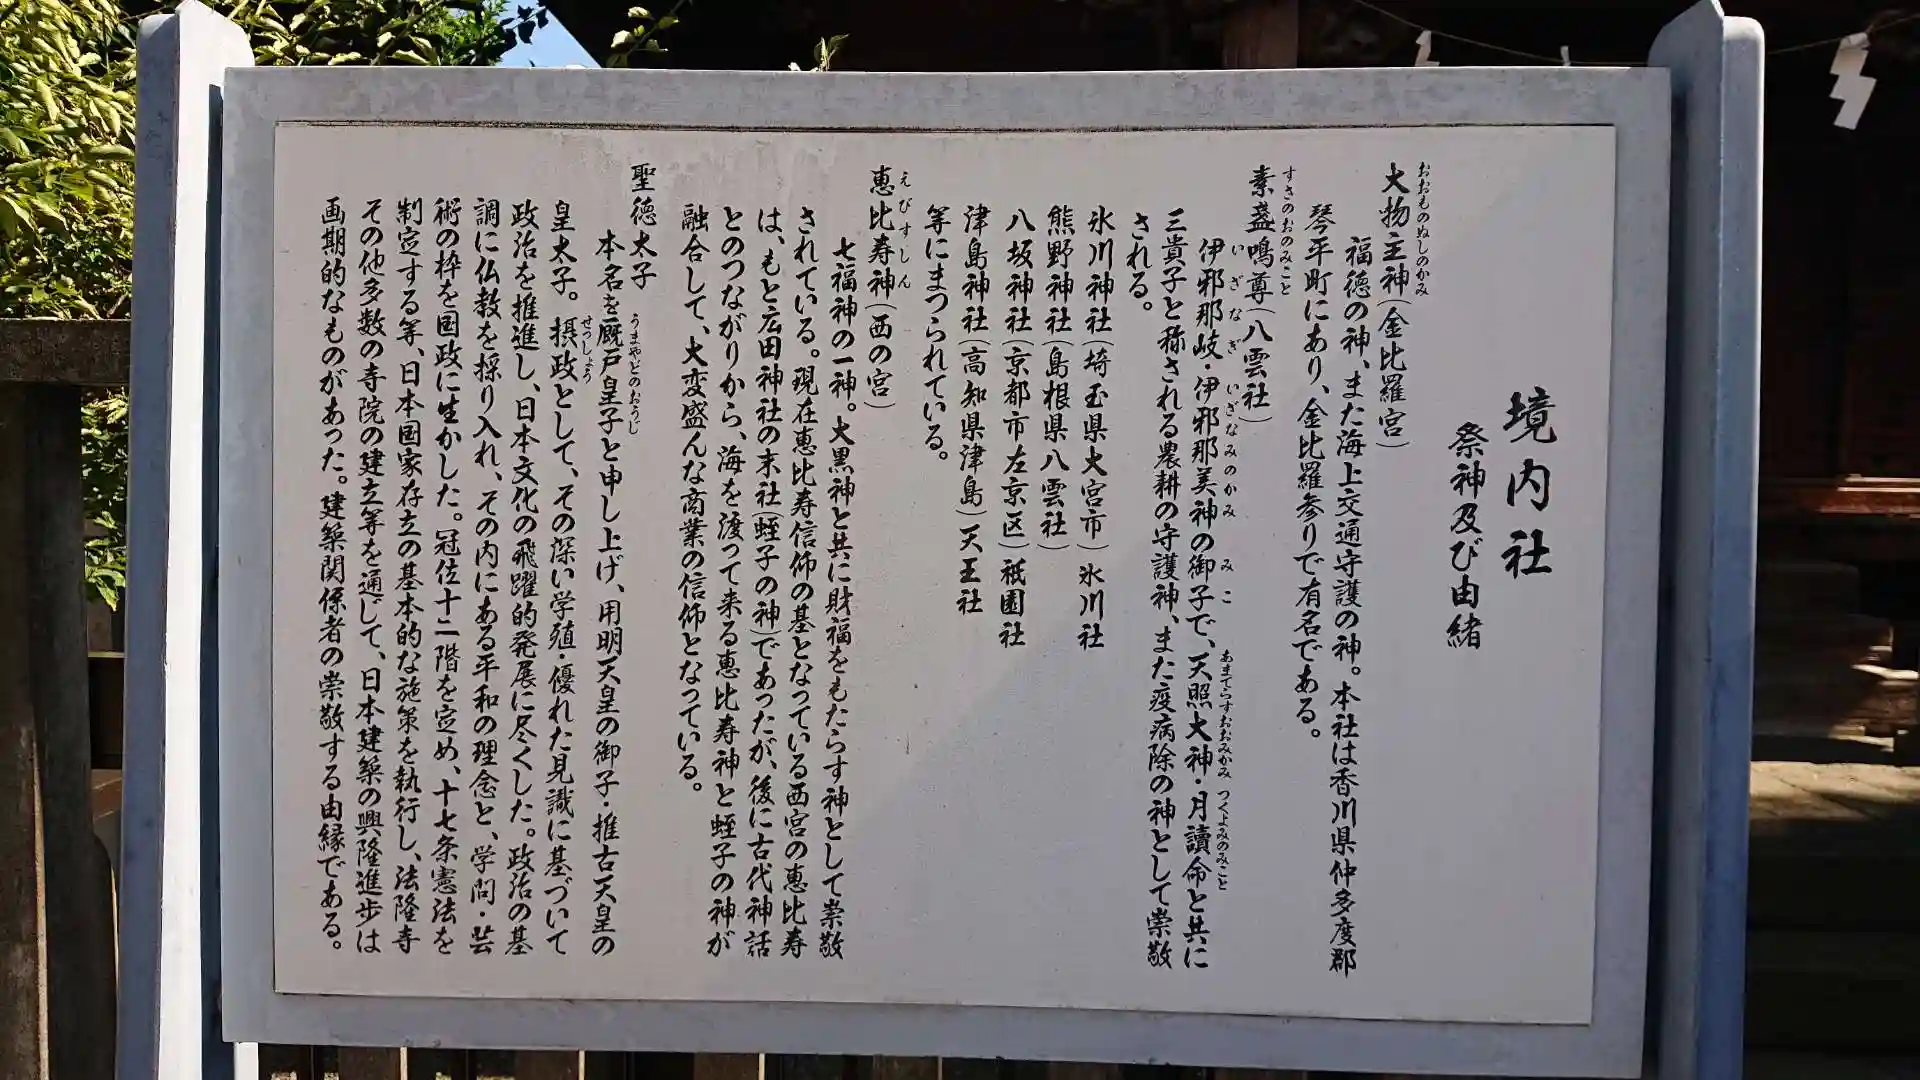 境内社
祭神及び由緒
大物主神(金比羅宮)
おおものぬしのかみ
福徳の神、また海上交通守護の神。本社は香川県仲多度郡
琴平町にあり、金比羅参りで有名である。
素盞鳴尊(八雲社)
すさのおのみこと
伊邪那岐・伊邪那美神の御子で、天照大神・月讀命と共に
いざなぎ いざなみのかみ みこ あまてらすおおみかみ つくよみのみこと
三貴子と称される農耕の守護神、また疫病除の神として崇敬
される。
氷川神社(埼玉県大宮市)氷川社
熊野神社(島根県八雲社)
八坂神社(京都市左京区)祇園社
津島神社(高知県津島)天王社
等にまつられている。
恵比寿神(西の宮)
えびすしん
七福神の一神。大黒神と共に財福をもたらす神として崇敬
されている。現在恵比寿信仰の基となっている西宮の恵比寿
は、もと広田神社の末社(蛭子の神)であったが、後に古代神話
とのつながりから、海を渡って来る恵比寿神と蛭子の神が
融合して、大変盛んな商業の信仰となっている。
聖徳太子
本名を厩戸皇子と申し上げ、用明天皇の御子・推古天皇の
うまやどのおうじ
皇太子。摂政として、その深い学殖・優れた見識に基づいて
せっしょう
政治を推進し、日本文化の飛躍的発展に尽くした。政治の基
調に仏教を採り入れ、その内にある平和の理念と、学問・芸
術の枠を国政に生かした。冠位十二階を定め、十七条憲法を
制定する等、日本国家存立の基本的な施策を執行し、法隆寺
その他多数の寺院の建立等を通じて、日本建築の興隆進歩は
画期的なものがあった。建築関係者の崇敬する由縁である。